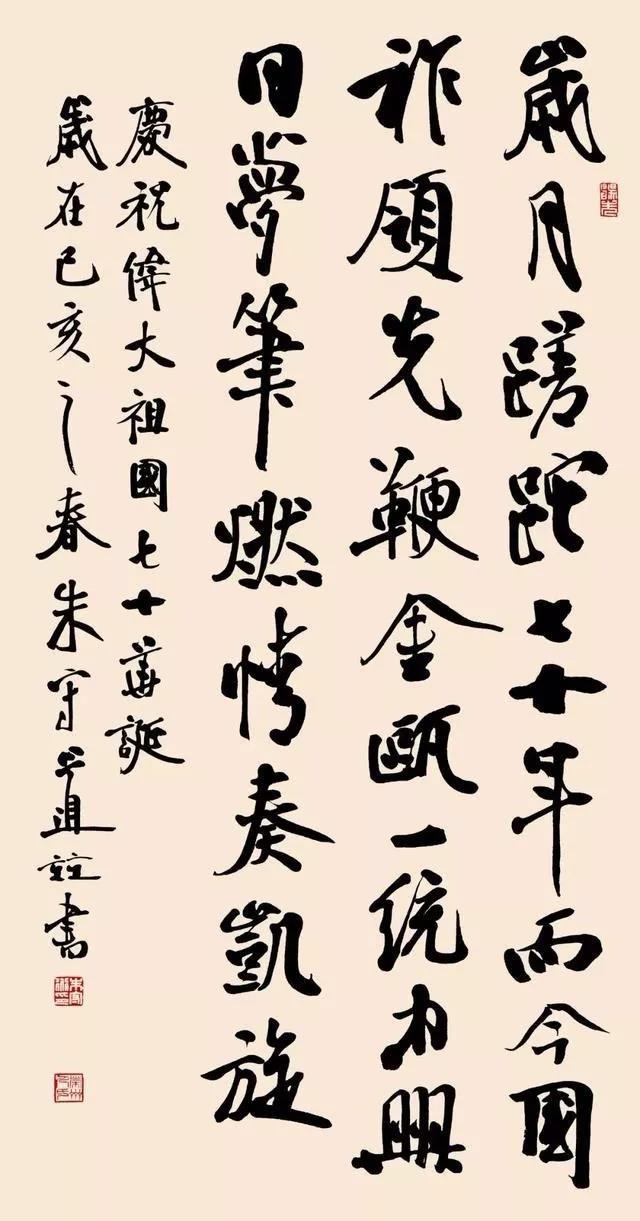 歲月蹉跎七十年而今國
祚領先鞭金甌一統中興
日夢筆燃情奏凱旋
慶祝偉大祖國七十華誕
歲在己亥之春朱守道竝書